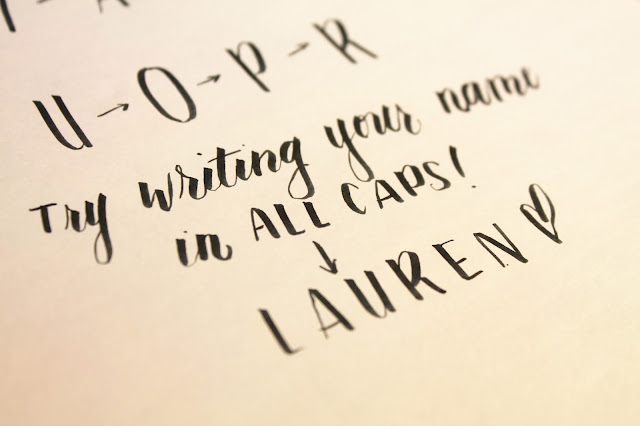 U → O → P → R
Try writing your name
in ALL CAPS!
↓
LAUREN ♡